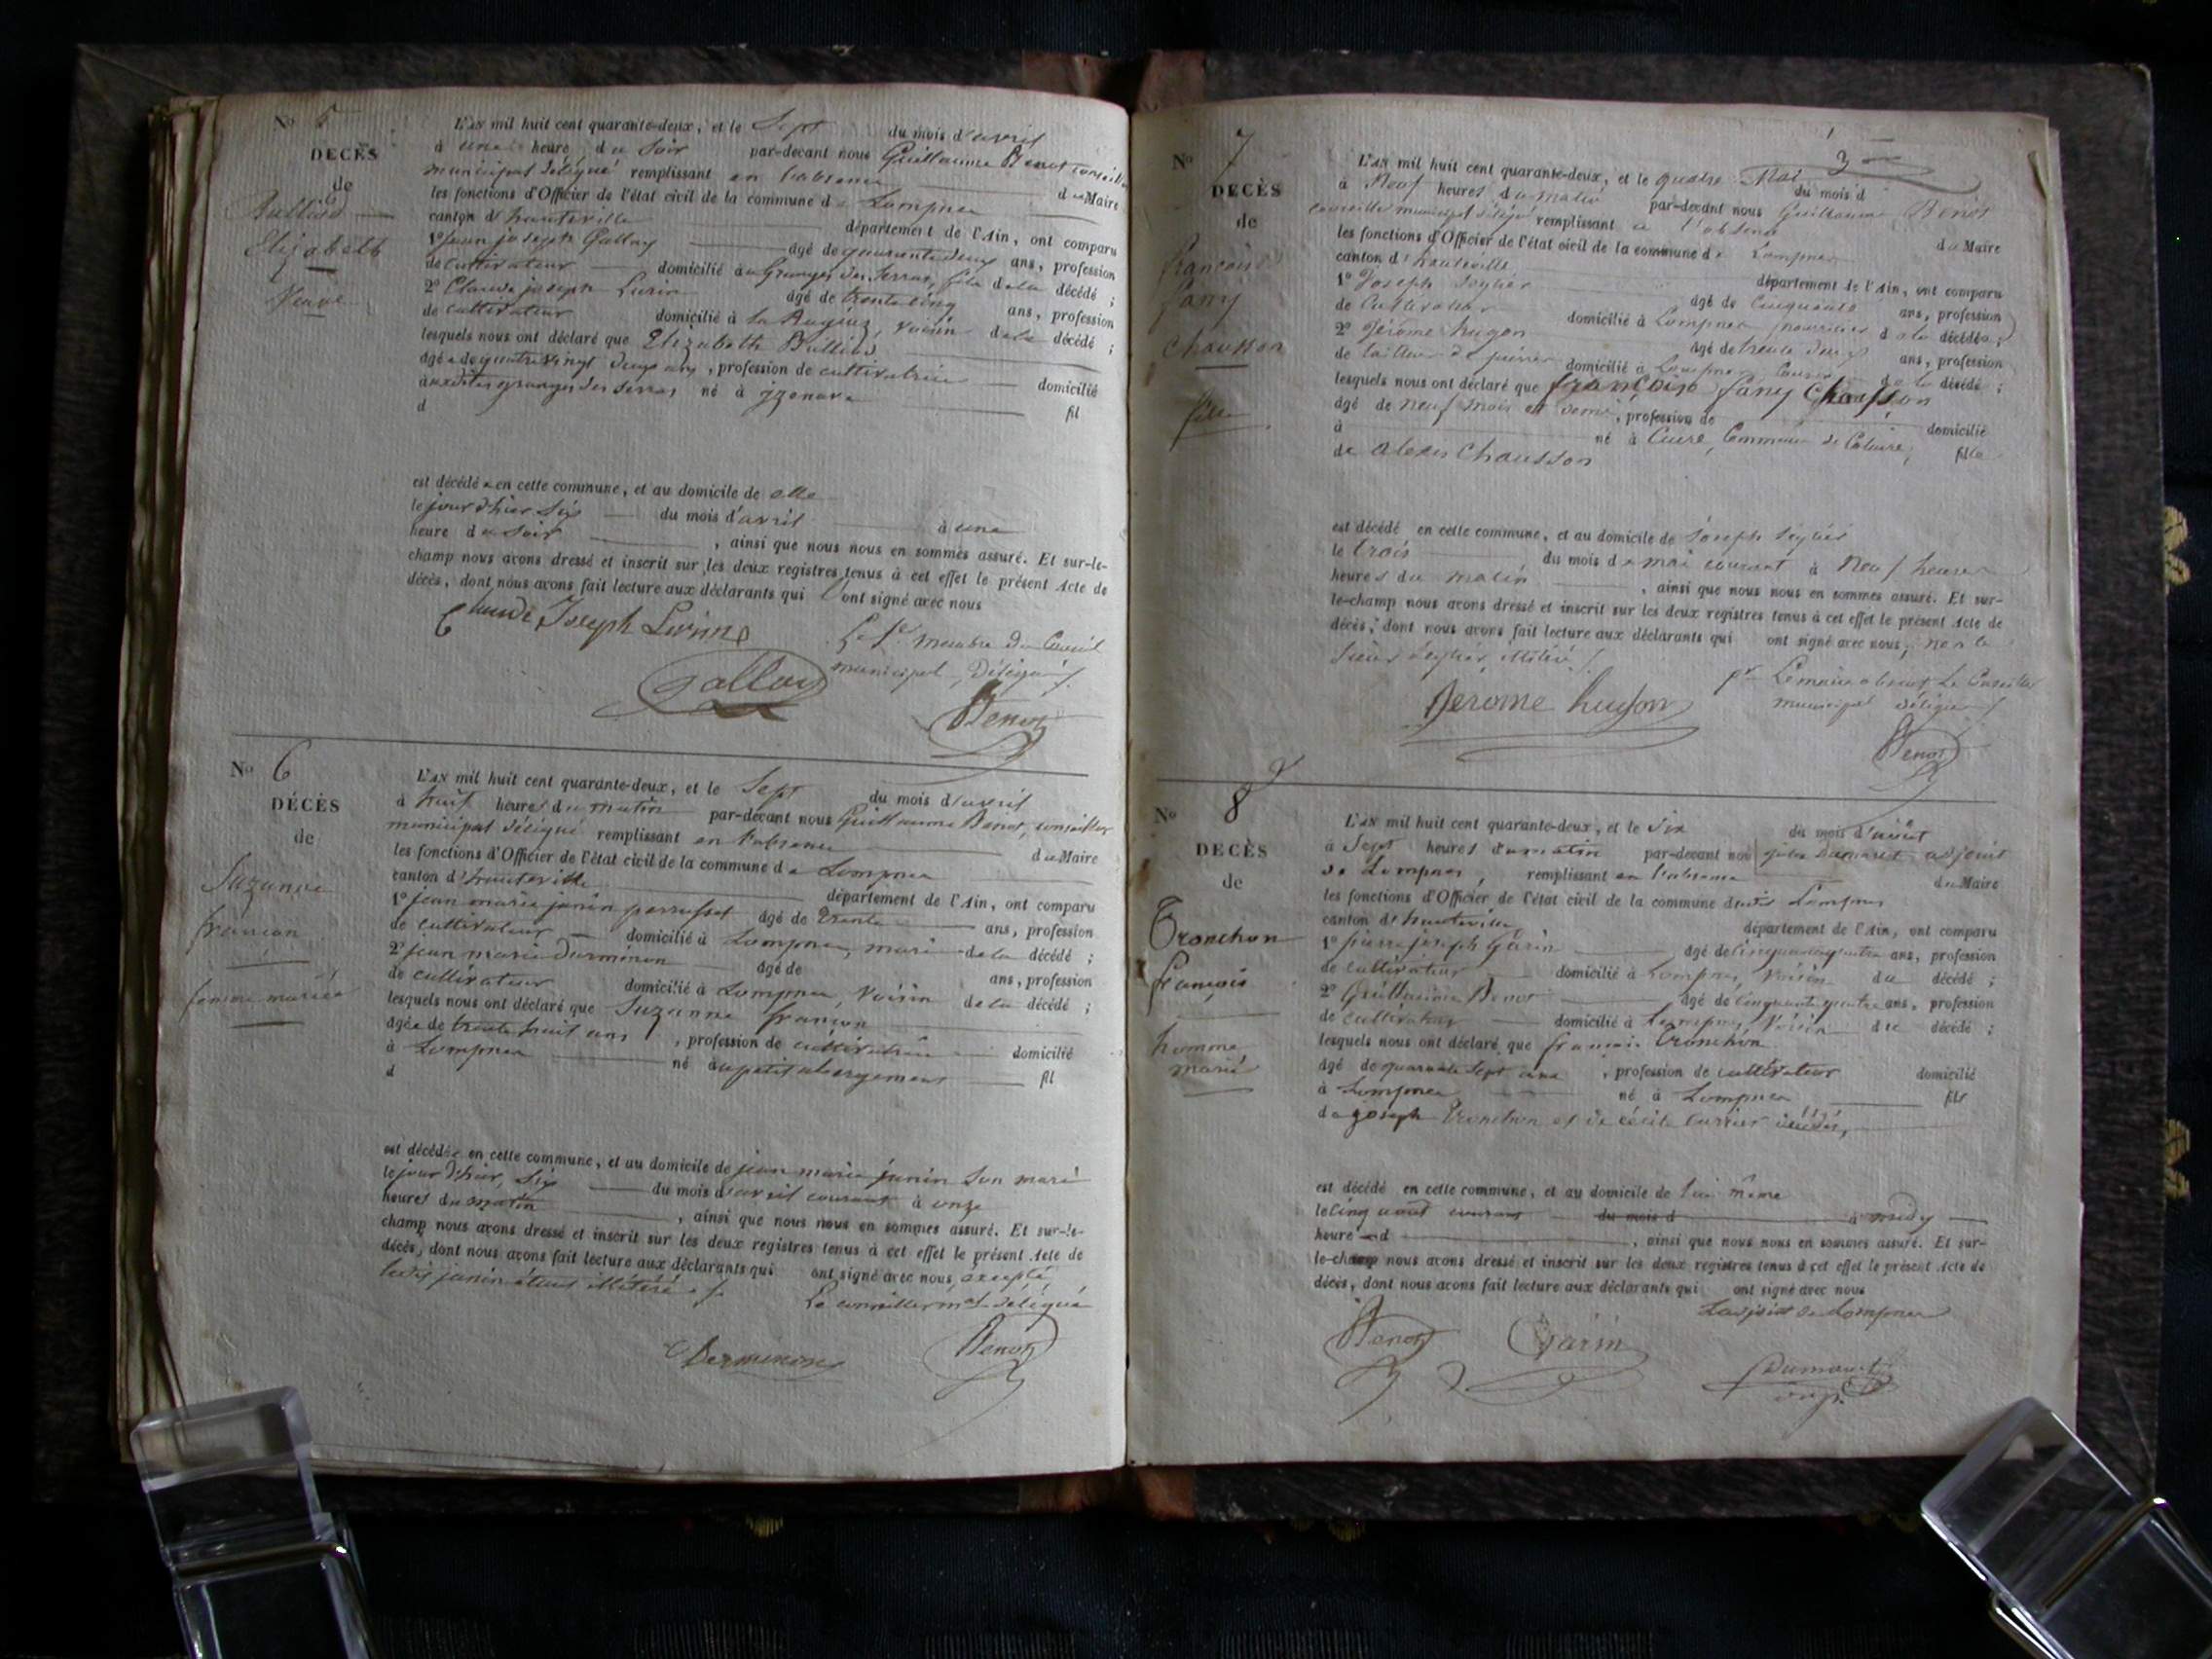 No 5
DECÈS
de
Bulliod
Elizabeth
Veuve
L'AN mil huit cent quarante-deux, et le Sept du mois d'avril
à une heure du Soir par-devant nous Guillaume Benot conseiller
municipal délégué remplissant en l'absence du Maire
les fonctions d'Officier de l'état civil de la commune de Lompnes
canton d'hauteville département de l'Ain, ont comparu
1° jean joseph Gallay âgé de quarante deux ans, profession
de cultivateur domicilié aux Granges des Serras, fils de la décédé ;
2° Claude joseph Livin âgé de trente cinq ans, profession
de cultivateur domicilié à , voisin de la décédé ;
lesquels nous ont déclaré que Elizabeth Bulliod
âgée de quatre vingt deux ans, profession de cultivatrice domicilié
auxdites granges des serras né à izenave fil
d
est décédée en cette commune, et au domicile de elle
le jour d'hier Six du mois d'avril à une
heure du Soir , ainsi que nous nous en sommes assuré. Et sur-le-
champ nous avons dressé et inscrit sur les deux registres tenus à cet effet le présent Acte de
décès, dont nous avons fait lecture aux déclarants qui l'ont signé avec nous
Claude Joseph Livinne
Le 1er membre du Conseil
municipal, Délégué
Gallay
Benot
No 6
DÉCÈS
de
Suzanne
francon
femme mariée
L'AN mil huit cent quarante-deux, et le Sept du mois d'avril
à huit heures du matin par-devant nous Guillaume Benot, conseiller
municipal délégué remplissant en l'absence du Maire
les fonctions d'Officier de l'état civil de la commune de Lompnes
canton d'hauteville département de l'Ain, ont comparu
1° jean marie janin perrusset âgé de trente ans, profession
de cultivateur domicilié à Lompnes, mari de la décédé ;
2° jean marie Dermenon âgé de ans, profession
de cultivateur domicilié à Lompnes, voisin de la décédé ;
lesquels nous ont déclaré que Suzanne francon
âgée de trente huit ans, profession de cultivatrice domicilié
à Lompnes né au petit abergement fil
d
est décédée en cette commune, et au domicile de jean marie janin Son mari
le jour d'hier, Six du mois d'avril courant à onze
heures du matin , ainsi que nous nous en sommes assuré. Et sur-le-
champ nous avons dressé et inscrit sur les deux registres tenus à cet effet le présent Acte de
décès, dont nous avons fait lecture aux déclarants qui ont signé avec nous, excepté
ledis janin étant illitéré
Le conseiller mal délégué
Dermenon
Benot
3
No 7
DECÈS
de
francoise
fany
chausson
fille
L'AN mil huit cent quarante-deux, et le quatre Mai du mois d
à Neuf heures du matin par-devant nous Guillaume Benot
conseille municipal délégé remplissant a l'absence du Maire
les fonctions d'Officier de l'état civil de la commune de Lompnes
canton d'hauteville département de l'Ain, ont comparu
1° Joseph âgé de Cinquante ans, profession
de Cultivateur domicilié à Lompnes nourricier de la décédée ;
2° Jérome hugon âgé de trente deux ans, profession
de tailleur de pierre domicilié à Lompnes de la décédé ;
lesquels nous ont déclaré que françoise fany Chausson
âgé de neuf mois et demi, profession de domicilié
à né à Cuire, Commune de Caluire, fille
de alexis Chausson
est décédé en cette commune, et au domicile de Joseph
le trois du mois de mai courant à Neuf heures
heures du matin , ainsi que nous nous en sommes assuré. Et sur-
le-champ nous avons dressé et inscrit sur les deux registres tenus à cet effet le présent Acte de
décès, dont nous avons fait lecture aux déclarants qui ont signé avec nous, non le
Sieur illitéré
pr Le maire absent Le Conseiller
municipal délégué
Jerome hugon
Benot
No 8
DECÈS
de
Tronchon
françois
homme
marié
L'AN mil huit cent quarante-deux, et le Six du mois d'août
à Sept heures du matin par-devant nous Dumarest adjoint
de Lompnes, remplissant en l'absence du Maire
les fonctions d'Officier de l'état civil de la commune dudit Lompnes
canton d'hauteville département de l'Ain, ont comparu
1° pierre joseph Garin âgé de cinquante quatre ans, profession
de cultivateur domicilié à Lompnes, voisin du décédé ;
2° Guillaume Benot âgé de cinquante quatre ans, profession
de cultivateur domicilié à Lompnes, voisin du décédé ;
lesquels nous ont déclaré que francois Tronchon
âgé de quarante Sept ans, profession de cultivateur domicilié
à Lompnes né à Lompnes fils
de joseph Tronchon et de cécile
est décédé en cette commune, et au domicile de lui même
le cinq août courant du mois d à midy
heure d , ainsi que nous nous en sommes assuré. Et sur-
le-champ nous avons dressé et inscrit sur les deux registres tenus à cet effet le présent Acte de
décès, dont nous avons fait lecture aux déclarants qui ont signé avec nous
L'adjoint de Lompnes
Benot
Garin
Dumarest